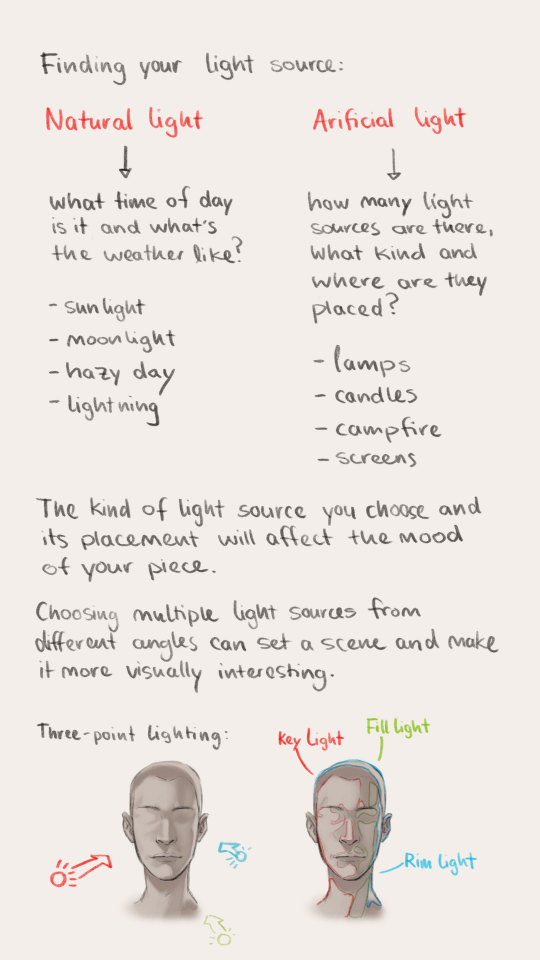 Finding your light source:
Natural light
what time of day
is it and what's
the weather like?
- sunlight
- moonlight
- hazy day
- lightning
Arificial light
how many light
sources are there,
what kind and
where are they
placed?
- lamps
- candles
- campfire
- screens
The kind of light source you choose and
its placement will affect the mood
of your piece.
Choosing multiple light sources from
different angles can set a scene and make
it more visually interesting.
Three-point lighting:
Key Light
Fill light
Rim light